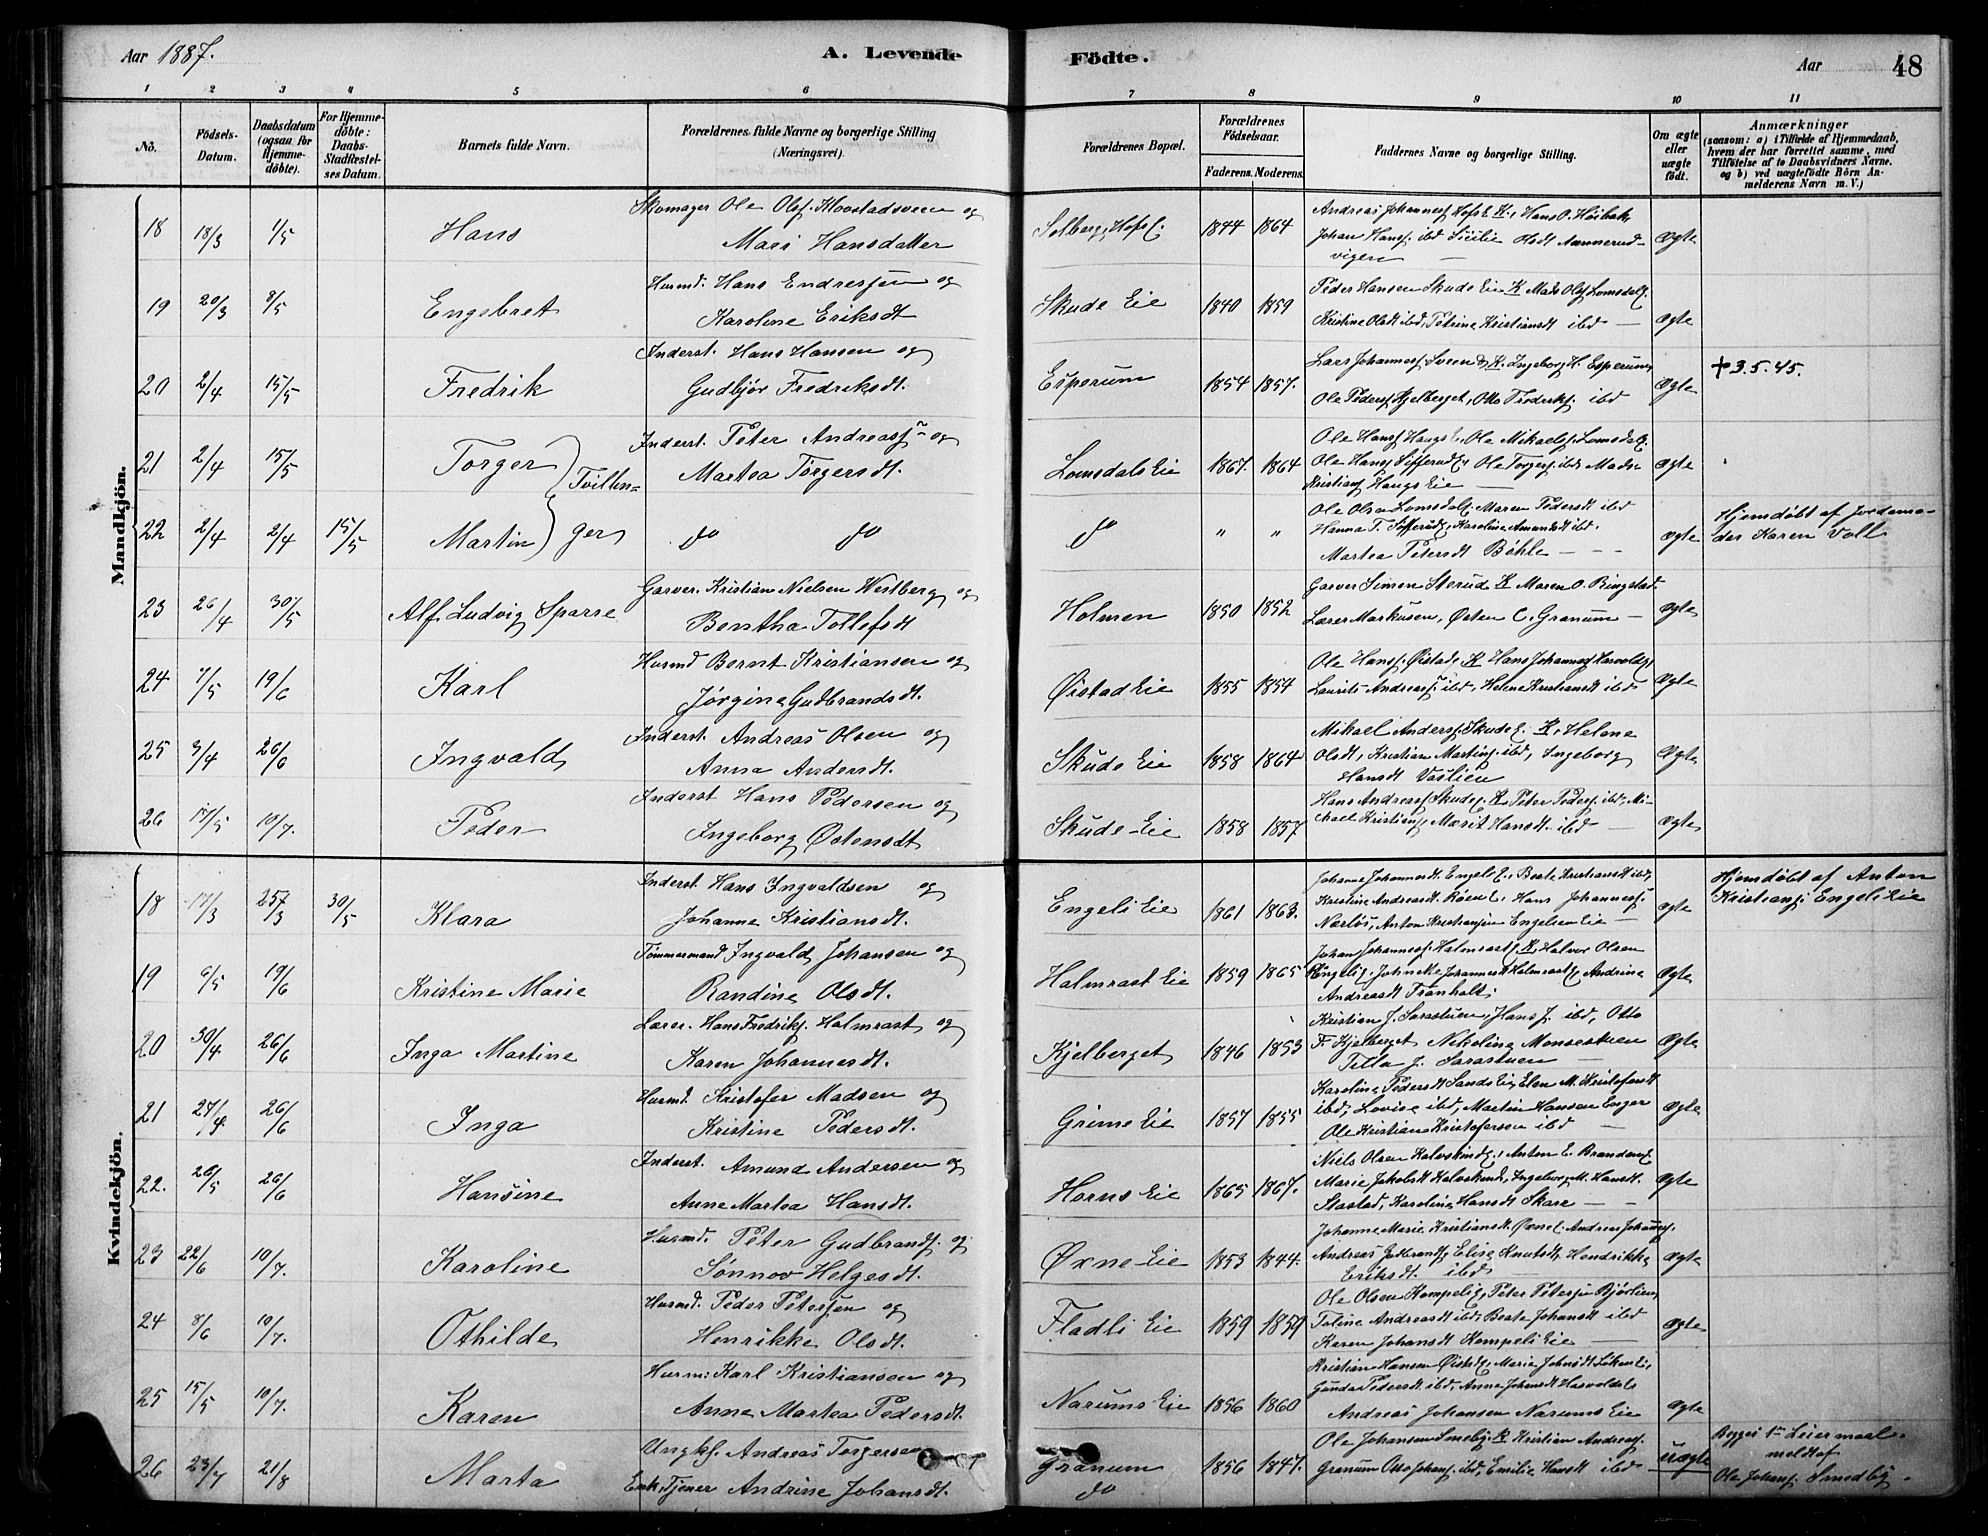 Aar 1887.
A. Levende
Födte.
Aar
48
1 2 3 4 5 6 7 8 9 10 11
No.
Födsels-Datum.
Daabsdatum (ogsaa for Hjemme-döbte).
For Hjemme-döbte: Daabs-Stadfæstel-ses Datum.
Barnets fulde Navn.
Forældrenes fulde Navne og borgerlige Stilling (Næringsvei).
Forældrenes Bopæl.
Forældrenes Födselsaar.
Faderens. Moderens.
Faddernes Navne og borgerlige Stilling.
Om ægte eller uægte födt.
Anmærkninger
(saasom: a) i Tilfælde af Hjemmedaab,
hvem der har forrettet samme, med
Tilföielse af to Daabsvidners Navne.
og b) ved uægtefödte Börn An-
melderens Navn m. V.)
Mandkjön.
18 18/3 1/5 Hans
Skomager Ole Olsf. Klovstadsveen og
Mari Hansdatter
Solberg, Hofs E. 1844 1864
Andreas Johannesf. Hofs E. K., Hans O. Höibak,
Johan Hansf. ibd Sicilie Olsdt Aannerud-
vigen
Ægte
19 20/3 8/5 Engebret
Husmd. Hans Endresen og
Karoline Eriksdt
Skude Eie 1840 1859
Peder Hansen Skude Eie K Mads Olsf Lomsdal E.
Kristine Olsdt ibd, Petrine Kristiansdt ibd
Ægte
20 2/4 15/5 Fredrik
Inderst. Hans Hansen og
Gudbjör Fredriksdt.
Esperum 1854 1857.
Lars Johannesf. Sveen K. Ingeborg H. Esperum,
Ole Pedersf Kjelberget, Otto Frederikf. ibd
Ægte
+ 3.5.45.
21 2/4 15/5 Torger
Tvillin-
Inderst. Peter Andreasf. og
Martea Torgersdt.
Lomsdals Eie 1867. 1864
Ole Hansf Haugs E., Ole Mikaelsf. Lomsdal E.
Ole Hansf Sifferud E., Ole Torgersf. ibd, Mads
Kristiansf Haugs Eie
Ægte
22 2/4 2/4 15/5 Martin
ger
do do
do " "
Ole Olsen Lomsdal E., Maren Pedersdt ibd
Hanna T. Sifferud E., Karoline Amundsdt ibd.
Martea Petersdt Böhle
ægte
Hjemdöbt af Jordemo-
der Karen Voll
23 26/4 30/5 Alf Ludvig Sparre
Garver. Kristian Nielsen Westberg og
Bentha Tollefsdt
Holmen 1850 1852
Garver Simen Sterud K Maren O. Ringstad.
Lærer Markusen, Östen C. Granum
Ægte
24 7/5 19/6 Karl
Husmd Bernt Kristiansen og
Jörgine Gudbrandsdt.
Øistad Eie 1855 1854
Ole Hansf. Øistad, K Hans Johannesf Hasvold E,
Laurits Andreasf. ibd, Helene Kristiansdt ibd
Ægte
25 3/4 26/6 Ingvald
Inderst. Andreas Olsen og
Anna Andersdt.
Skude Eie 1858 1864
Mikael Andersf. Skude E. K, Helene
Olsdt, Kristian Martinsf. ibd, Ingeborg
Hansdt Vaslien
Ægte
26 17/5 10/7. Peder
Inderst Hans Pedersen og
Ingeborg Østensdt
Skude-Eie 1858 1857
Hans Andreasf Skude E. K Peter Pedersf. ibd, Mi-
kael Kristiansf., Marit Hansdt ibd
Ægte
Kvindekjön.
18 17/3 25/3 30/5 Klara
Inderst. Hans Ingvaldsen og
Johanne Kristiansdt.
Engeli Eie 1861 1863.
Johanne Johannesdt. Engeli E., Beate Kristiansdt ibd,
Kristine Andreasdt. Röen E., Hans Johannesf.
Narlös, Anton Kristiansen Engelien Eie
Ægte
Hjemdöbt af Anton
Kristiansf. Engeli Eie
19 6/5 19/6 Kristine Marie
Tömmermand Ingvald Johansen og
Randine Olsdt.
Halmrast Eie 1859 1865
Johan Johannesf. Halmrast E, K, Halvor Olsen
Engeli E., Johanne Johannesdt Halmrast E. Andrine
Andreasdt Tranholt.
Ægte
20 30/4 26/6 Inga Martine
Lærer. Hans Fredrikf. Halmrast og
Karen Johannesdt.
Kjelberget 1846 1853
Kristian J. Sarastuen, Hans J. ibd, Otto
F. Kjelberget Nikoline Monsestuen
Tilla J. Sarastuen
Ægte
21 27/4 26/6 Inga
Husmd. Kristofer Madsen og
Kristine Pedersdt.
Grime Eie 1857 1855
Karoline Pedersdt Sands Eie, Elen M. Kristofersdt
ibd, Lovise ibd, Martin Hansen Enger
Ole Kristian Kristofersen ibd
Ægte
22. 20/5 26/6 Hansine
Inderst. Amund Andersen og
Anne Martea Hansdt.
Horns Eie 1865 1867.
Niels Olsen Kalvskind E., Anton E. Branden E
Marie Jakobsdt Kalvskind, Ingeborg M. Hansdt.
Stastad, Karoline Hansdt Skare
Ægte
23 22/6 10/7. Karoline
Husmd. Peter Gudbrandf. og
Sönnov Helgesdt.
Øxne Eie 1853 1844.
Johanne Marie Kristiansdt. Øxne E. Andreas Johannesf.
Andreas Gulbrandf, Elise Knutsdt, Hendrikke
Eriksdt. ibd
Ægte
24 8/6 10/7. Othilde
Husmd. Peder Petersen og
Henrikke Olsdt.
Fladli Eie 1859 1859
Ole Olsen Kompeli E, Peter Petersen Björlien,
Toline Andreasdt ibd, Beate Johansdt ibd
Karen Johansdt Kompeli Eie
Ægte
25 15/5 10/7. Karen
Husm: Karl Kristiansen og
Anne Martea Pedersdt.
Narums Eie 1856 1860
Kristian Hansen Øistad E., Marie Johnsdt Löken E.,
Gunda Pedersdt ibd, Anne Johansdt Hasvolds E
Andreas Johansen Narums Eie
Ægte
26 23/7 21/8 Marta
Ungkf. Andreas Torgersen
Enk. Tjener Andrine Johansdt.
Granum
do
1856 1847.
Ole Johansen Smeby. K Kristian Andreasf.
Granum Otto Johansf. ibd, Emilie Hansdt ibd
uægte
Begges 1ste Leiermaal.
meldt af
Ole Johansf. Smedby